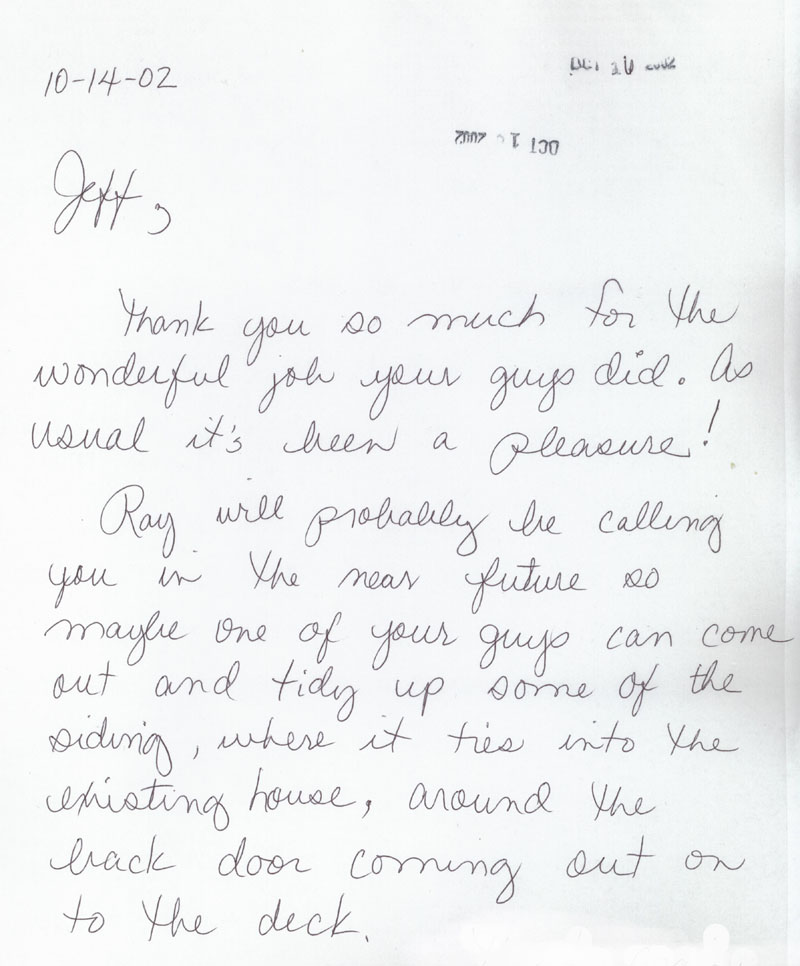 10-14-02
OCT 1 2002
Jeff,
Thank you so much for the
wonderful job your guys did. As
usual it's been a pleasure!
Ray will probably be calling
you in the near future so
maybe one of your guys can come
out and tidy up some of the
siding, where it ties into the
existing house, around the
back door coming out on
to the deck.